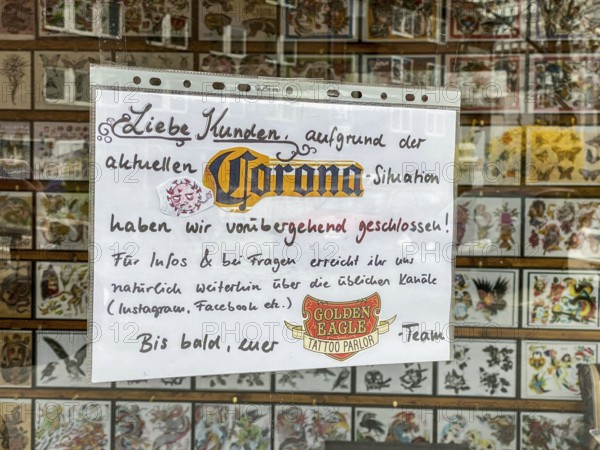 Liebe Kunden, aufgrund der
aktuellen Corona-Situation
haben wir vorübergehend geschlossen!
Für Infos & bei Fragen erreicht ihr uns
natürlich weiterhin über die üblichen Kanäle
(Instagram, Facebook etc.)
GOLDEN
EAGLE
TATTOO PARLOR
Bis bald, euer -Team